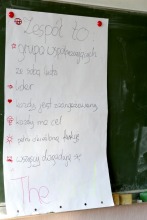 Zespół to
grupa współpracujących
ze sobą ludzi
lider
każdy jest zaangażowany
każdy ma cel
pełni określone funkcje
wszyscy dogadują się
The